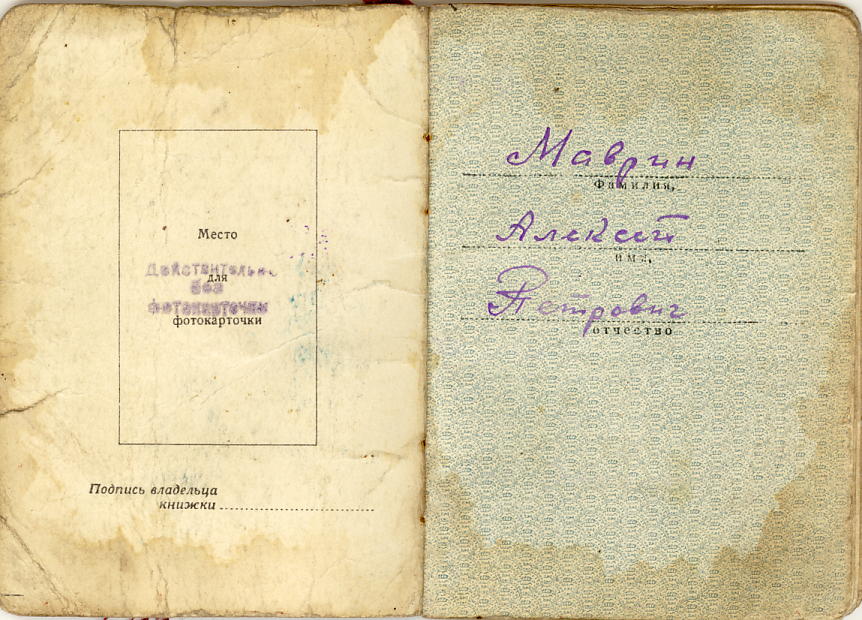 Место
Действительно
без
для
фотокарточки
фотокарточки
Подпись владельца
книжки
Маврин
Фамилия,
Алексей
имя,
Петрович
отчество